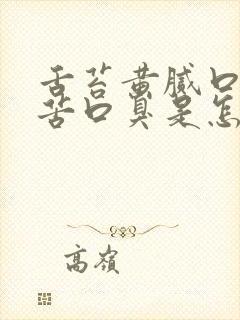 舌苔黄腻口
苦口臭是怎
高嶺